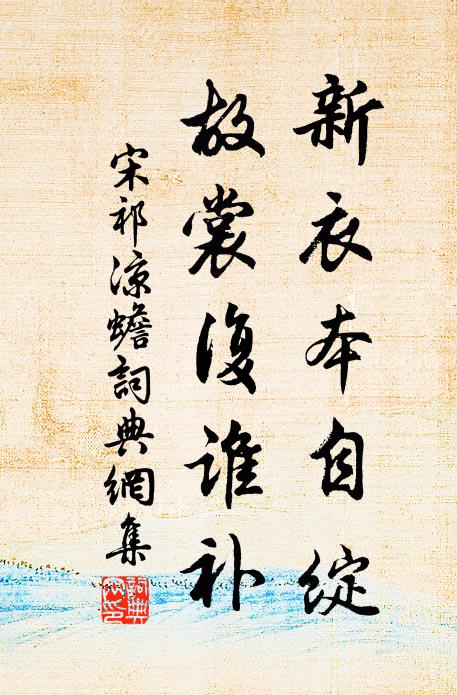 新衣本自綻
故裳復誰补
宋祁凉蟾詞典網集